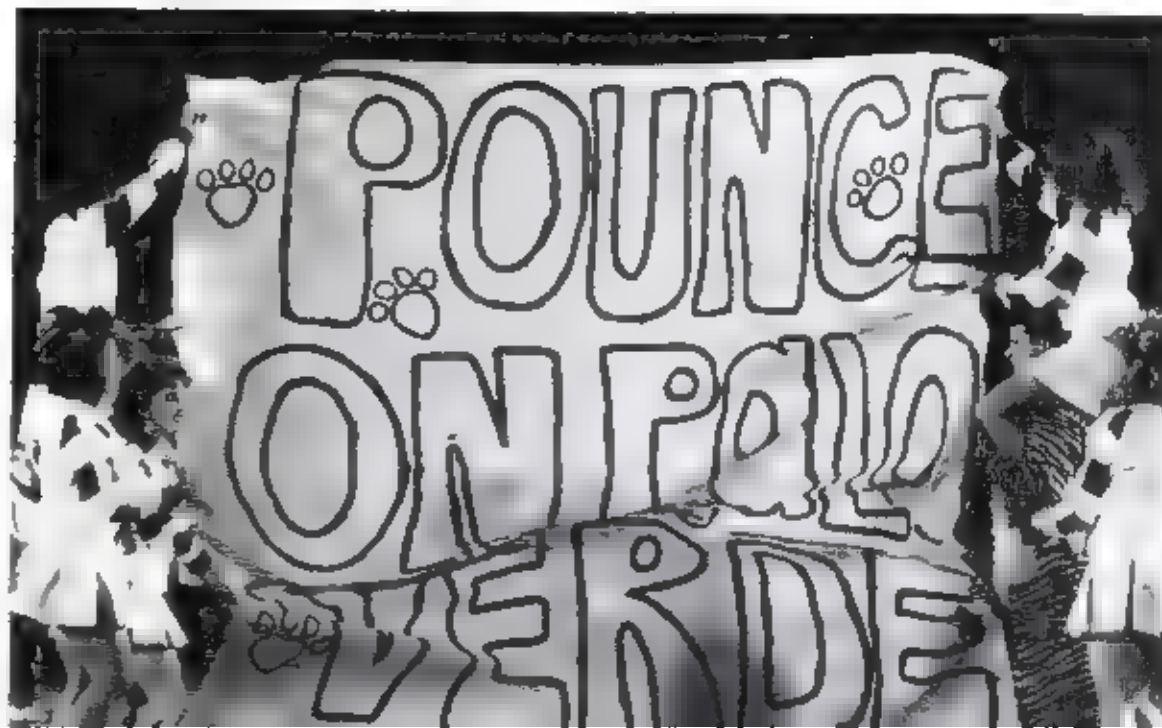 POUNCE
ON PALO
VERDE